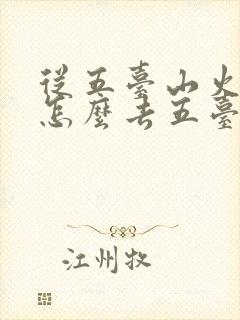 從五臺山火
怎麼去五臺
江州牧